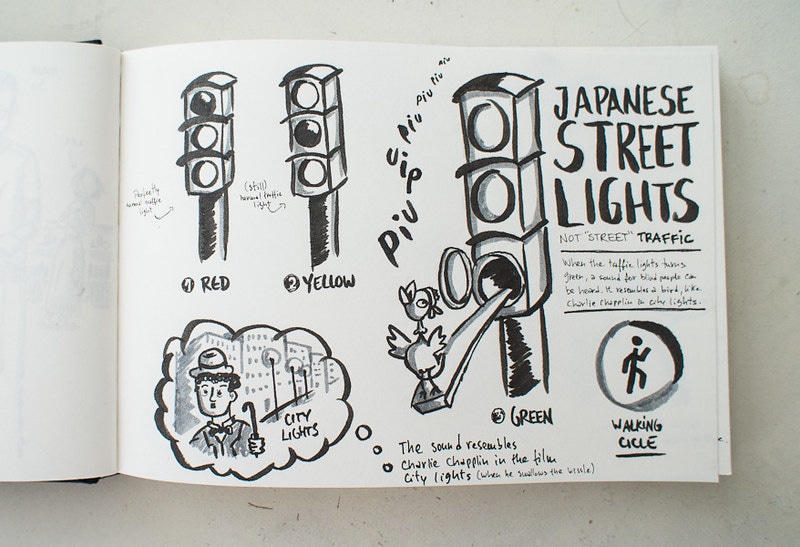 JAPANESE
STREET
LIGHTS
NOT "STREET" TRAFFIC
When the traffic lights turns
green, a sound for blind people can
be heard. It resembles a bird, like
Charlie Chapplin in city lights.
Perfectly
normal traffic
light
① RED
(still)
normal traffic
light
② YELLOW
Piu uip Piu Piu Piu Piu
③ GREEN
WALKING
CICLE
CITY
LIGHTS
The sound resembles
Charlie Chapplin in the film
City lights (when he swallows the wissle)